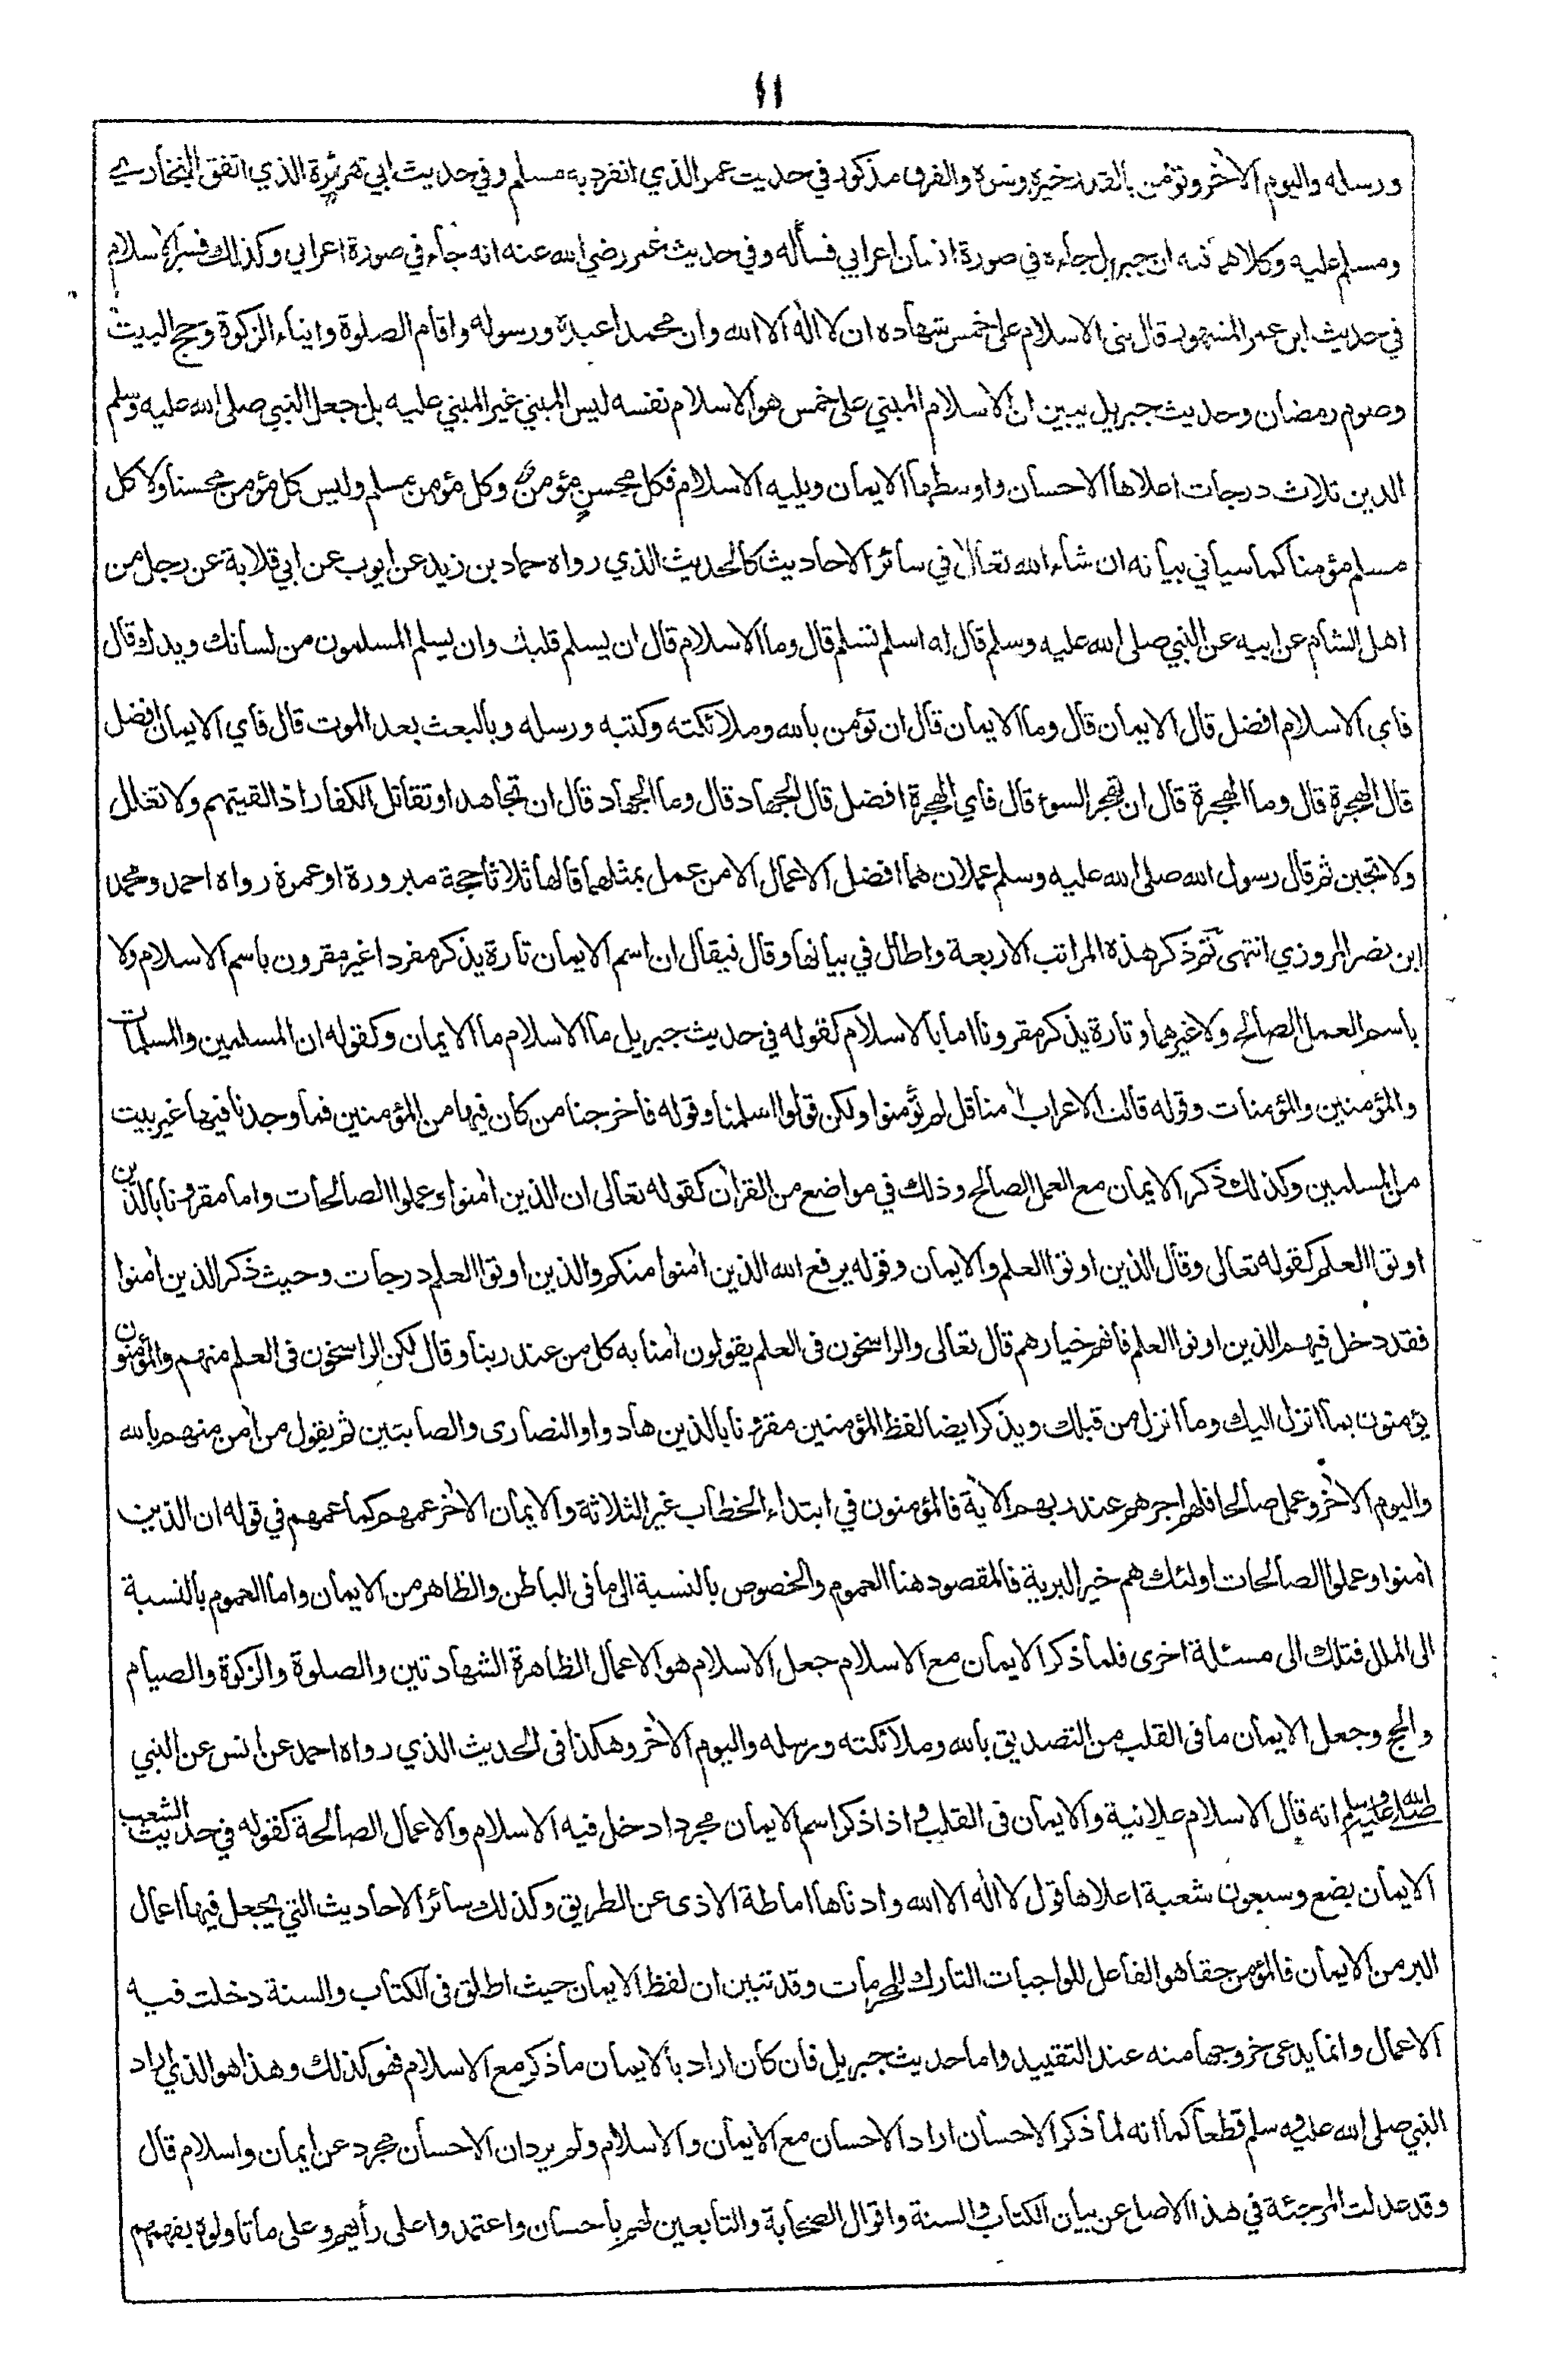 ١١
ورسله واليوم الاخر وتؤمن بالقدر خيره وشره والفرق مذكور في حديث عمر الذي انفرد به مسلم وفي حديث ابي هريرة الذي اتفق البخاري
ومسلم عليه وكلاهما فيه ان جبريل جاءه في صورة انسان اعرابي فسأله وفي حديث عمر رضي الله عنه انه جاء في صورة اعرابي وكذلك فسر الاسلام
في حديث ابن عمر المشهور قال بنى الاسلام على خمس شهادة ان لا اله الا الله وان محمدا عبده ورسوله واقام الصلوة وايتاء الزكوة وحج البيت
وصوم رمضان وحديث جبريل يبين ان الاسلام المبني على خمس هو الاسلام نفسه ليس المبني غير المبني عليه بل جعل النبي صلى الله عليه وسلم
الدين ثلاث درجات اعلاها الاحسان واوسطها الايمان ويليه الاسلام فكل محسن مؤمن وكل مؤمن مسلم وليس كل مؤمن محسنا ولا كل
مسلم مؤمنا كما سيأتي بيانه ان شاء الله تعالى في سائر الاحاديث كالحديث الذي رواه حماد بن زيد عن ايوب عن ابي قلابة عن رجل من
اهل الشام عن ابيه عن النبي صلى الله عليه وسلم قال له اسلم تسلم قال وما الاسلام قال ان يسلم قلبك وان يسلم المسلمون من لسانك ويدك قال
فاي الاسلام افضل قال الايمان قال وما الايمان قال ان تؤمن بالله وملائكته وكتبه ورسله وبالبعث بعد الموت قال فاي الايمان افضل
قال الهجرة قال وما الهجرة قال ان تهجر السوء قال فاي الهجرة افضل قال الجهاد قال وما الجهاد قال ان تجاهد او تقاتل الكفار اذا لقيتهم ولا تغلل
ولا تجبن ثم قال رسول الله صلى الله عليه وسلم عملان هما افضل الاعمال الا من عمل بمثلهما قالها ثلاثا حجة مبرورة او عمرة رواه احمد ومحمد
ابن نصر المروزي انتهى ثم ذكر هذه المراتب الاربعة واطال في بيانها وقال فيقال ان اسم الايمان تارة يذكر مفردا غير مقرون باسم الاسلام ولا
باسم العمل الصالح ولا غيرهما وتارة يذكر مقرونا اما بالاسلام كقوله في حديث جبريل ما الاسلام ما الايمان وكقوله ان المسلمين والمسلمات
والمؤمنين والمؤمنات وقوله قالت الاعراب امنا قل لم تؤمنوا ولكن قولوا اسلمنا وقوله فاخرجنا من كان فيها من المؤمنين فما وجدنا فيها غير بيت
من المسلمين وكذلك ذكر الايمان مع العمل الصالح وذلك في مواضع من القران كقوله تعالى ان الذين امنوا وعملوا الصالحات واما مقرونا بالذين
اوتوا العلم كقوله تعالى وقال الذين اوتوا العلم والايمان وقوله يرفع الله الذين امنوا منكم والذين اوتوا العلم درجات وحيث ذكر الذين امنوا
فقد دخل فيهم الذين اوتوا العلم فانهم خيارهم قال تعالى والراسخون في العلم يقولون امنا به كل من عند ربنا وقال لكن الراسخون في العلم منهم والمؤمنون
يؤمنون بما انزل اليك وما انزل من قبلك ويذكر ايضا لفظ المؤمنين مقرونا بالذين هادوا والنصارى والصابئين ثم يقول من امن منهم بالله
واليوم الاخر وعمل صالحا فلهم اجرهم عند ربهم الاية فالمؤمنون في ابتداء الخطاب غير الثلاثة والايمان الاخر عمهم كما عمهم في قوله ان الذين
امنوا وعملوا الصالحات اولئك هم خير البرية فالمقصود هنا العموم والخصوص بالنسبة الى ما في الباطن والظاهر من الايمان واما العموم بالنسبة
الى الملل فتلك الى مسئلة اخرى فلما ذكر الايمان مع الاسلام جعل الاسلام هو الاعمال الظاهرة الشهادتين والصلوة والزكوة والصيام
والحج وجعل الايمان ما في القلب من التصديق بالله وملائكته ورسله واليوم الاخر وهكذا في الحديث الذي رواه احمد عن انس عن النبي
صلى الله عليه وسلم انه قال الاسلام علانية والايمان في القلب واذا ذكر اسم الايمان مجردا دخل فيه الاسلام والاعمال الصالحة كقوله في حديث الشعب
الايمان بضع وسبعون شعبة اعلاها قول لا اله الا الله وادناها اماطة الاذى عن الطريق وكذلك سائر الاحاديث التي يجعل فيها اعمال
البر من الايمان فالمؤمن حقا هو الفاعل للواجبات التارك للمحرمات وقد تبين ان لفظ الايمان حيث اطلق في الكتاب والسنة دخلت فيه
الاعمال وانما يدعى خروجها منه عند التقييد واما حديث جبريل فان كان اراد بالايمان ما ذكر مع الاسلام فهو كذلك وهذا هو الذي اراد
النبي صلى الله عليه وسلم قطعا كما انه لما ذكر الاحسان اراد الاحسان مع الايمان والاسلام ولم يرد ان الاحسان مجرد عن ايمان واسلام قال
وقد عدلت المرجئة في هذا الاصل عن بيان الكتاب والسنة واقوال الصحابة والتابعين لهم باحسان واعتمدوا على رأيهم وعلى ما تأولوه بفهمهم